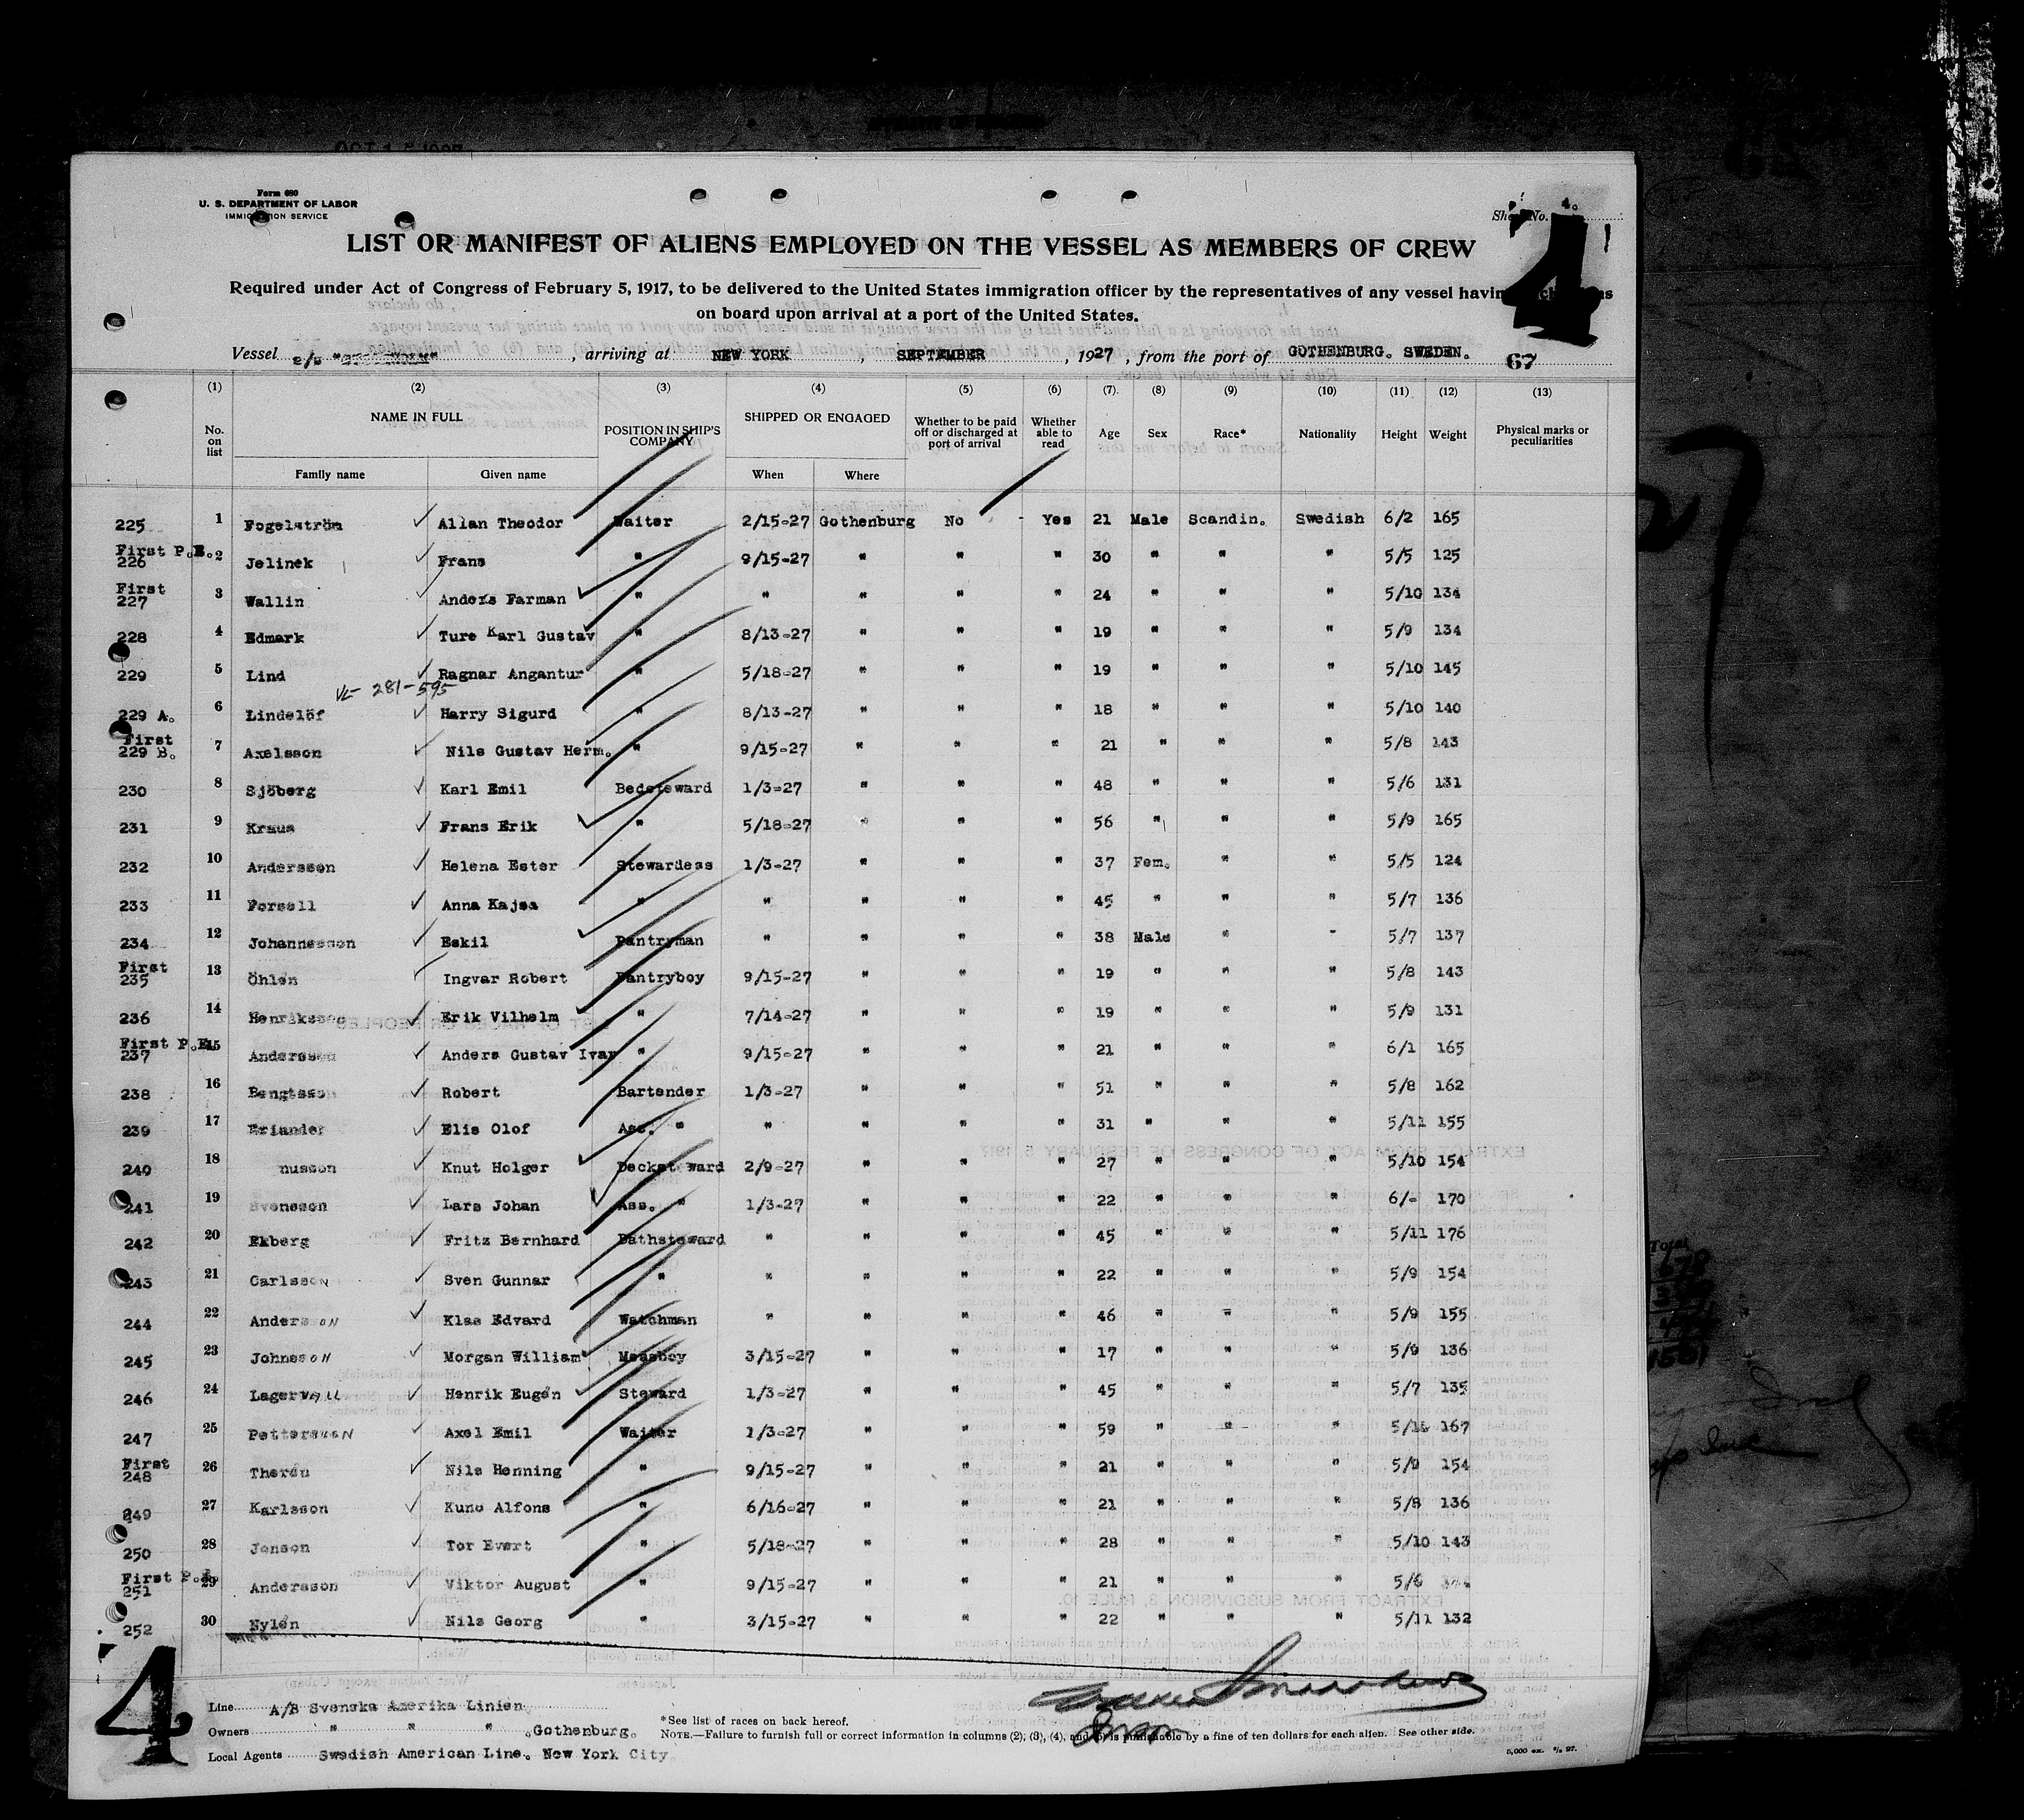 Form 680
U. S. DEPARTMENT OF LABOR
IMMIGRATION SERVICE
Sheet No. 4.
4
LIST OR MANIFEST OF ALIENS EMPLOYED ON THE VESSEL AS MEMBERS OF CREW
Required under Act of Congress of February 5, 1917, to be delivered to the United States immigration officer by the representatives of any vessel having
on board upon arrival at a port of the United States.
Vessel s/s , arriving at NEW YORK , SEPTEMBER , 1927 , from the port of GOTHENBURG. SWEDEN. 67
(1) (2) (3) (4) (5) (6) (7) (8) (9) (10) (11) (12) (13)
No. on list NAME IN FULL Family name Given name POSITION IN SHIP'S COMPANY SHIPPED OR ENGAGED When Where Whether to be paid off or discharged at port of arrival Whether able to read Age Sex Race* Nationality Height Weight Physical marks or peculiarities
225 1 Fogelström Allan Theodor Waiter 2/15-27 Gothenburg No Yes 21 Male Scandin. Swedish 6/2 165
First P.E. 226 2 Jelinek Frans " 9/15-27 " " " 30 " " " 5/5 125
First 227 3 Wallin Anders Farman " " " " " 24 " " " 5/10 134
228 4 Edmark Ture Karl Gustav " 8/13-27 " " " 19 " " " 5/9 134
229 5 Lind Ragnar Angantur " 5/18-27 " " " 19 " " " 5/10 145
281-595
229 A. 6 Lindelöf Harry Sigurd " 8/13-27 " " " 18 " " " 5/10 140
First 229 B. 7 Axelsson Nils Gustav Herm. " 9/15-27 " " " 21 " " " 5/8 143
230 8 Sjöberg Karl Emil Bedsteward 1/3-27 " " " 48 " " " 5/6 131
231 9 Kraus Frans Erik " 5/18-27 " " " 56 " " " 5/9 165
232 10 Andersson Helena Ester Stewardess 1/3-27 " " " 37 Fem. " " 5/5 124
233 11 Forsell Anna Kajsa " " " " " 45 " " " 5/7 136
234 12 Johannesson Eskil Pantryman " " " " 38 Male " " 5/7 137
First 235 13 Öhlén Ingvar Robert Pantryboy 9/15-27 " " " 19 " " " 5/8 143
236 14 Henriksson Erik Vilhelm " 7/14-27 " " " 19 " " " 5/9 131
First P.E. 237 15 Andersson Anders Gustav Ivar " 9/15-27 " " " 21 " " " 6/1 165
238 16 Bengtsson Robert Bartender 1/3-27 " " " 51 " " " 5/8 162
239 17 Eriander Elis Olof Ass. " " " " " 31 " " " 5/11 155
240 18 nusson Knut Holger Decksteward 2/9-27 " " " 27 " " " 5/10 154
241 19 Svensson Lars Johan Ass. " 1/3-27 " " " 22 " " " 6/- 170
242 20 Ekberg Fritz Bernhard Bathsteward " " " " 45 " " " 5/11 176
243 21 Carlsson Sven Gunnar " " " " " 22 " " " 5/9 154
244 22 Andersson Klas Edvard Watchman " " " " 46 " " " 5/9 155
245 23 Johnsson Morgan William Messboy 3/15-27 " " " 17 " " " 5/9 136
246 24 Lagerwall Henrik Eugén Steward 1/3-27 " " " 45 " " " 5/7 135
247 25 Pettersson Axel Emil Waiter 1/3-27 " " " 59 " " " 167
First 248 26 Therén Nils Henning " 9/15-27 " " " 21 " " " 5/9 154
249 27 Karlsson Kuno Alfons " 6/16-27 " " " 21 " " " 5/8 136
250 28 Jonson Tor Evert " 5/18-27 " " " 28 " " " 5/10 143
First 251 29 Andersson Viktor August " 9/15-27 " " " 21 " " " 5/6
252 30 Nylén Nils Georg " 3/15-27 " " " 22 " " " 5/11 132
4
Line A/B Svenska Amerika Linien
Owners " " " Gothenburg.
Local Agents Swedish American Line. New York City
*See list of races on back hereof.
NOTE.—Failure to furnish full or correct information in columns (2), (3), (4), and is punishable by a fine of ten dollars for each alien. See other side.
Total